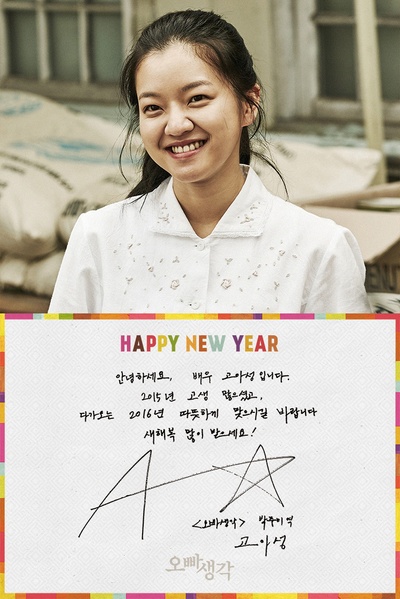 HAPPY NEW YEAR
안녕하세요, 배우 고아성입니다.
2015년 고생 많으셨고,
다가오는 2016년 따뜻하게 맞으시길 바랍니다
새해복 많이 받으세요!
<오빠생각> 박주미 역
고아성
오빠생각